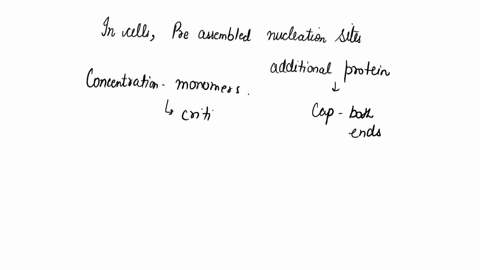 In cells, Pre assembled nucleation sites
additional protein
↓
Concentration - monomers.
↳ criti
Cap - both
ends